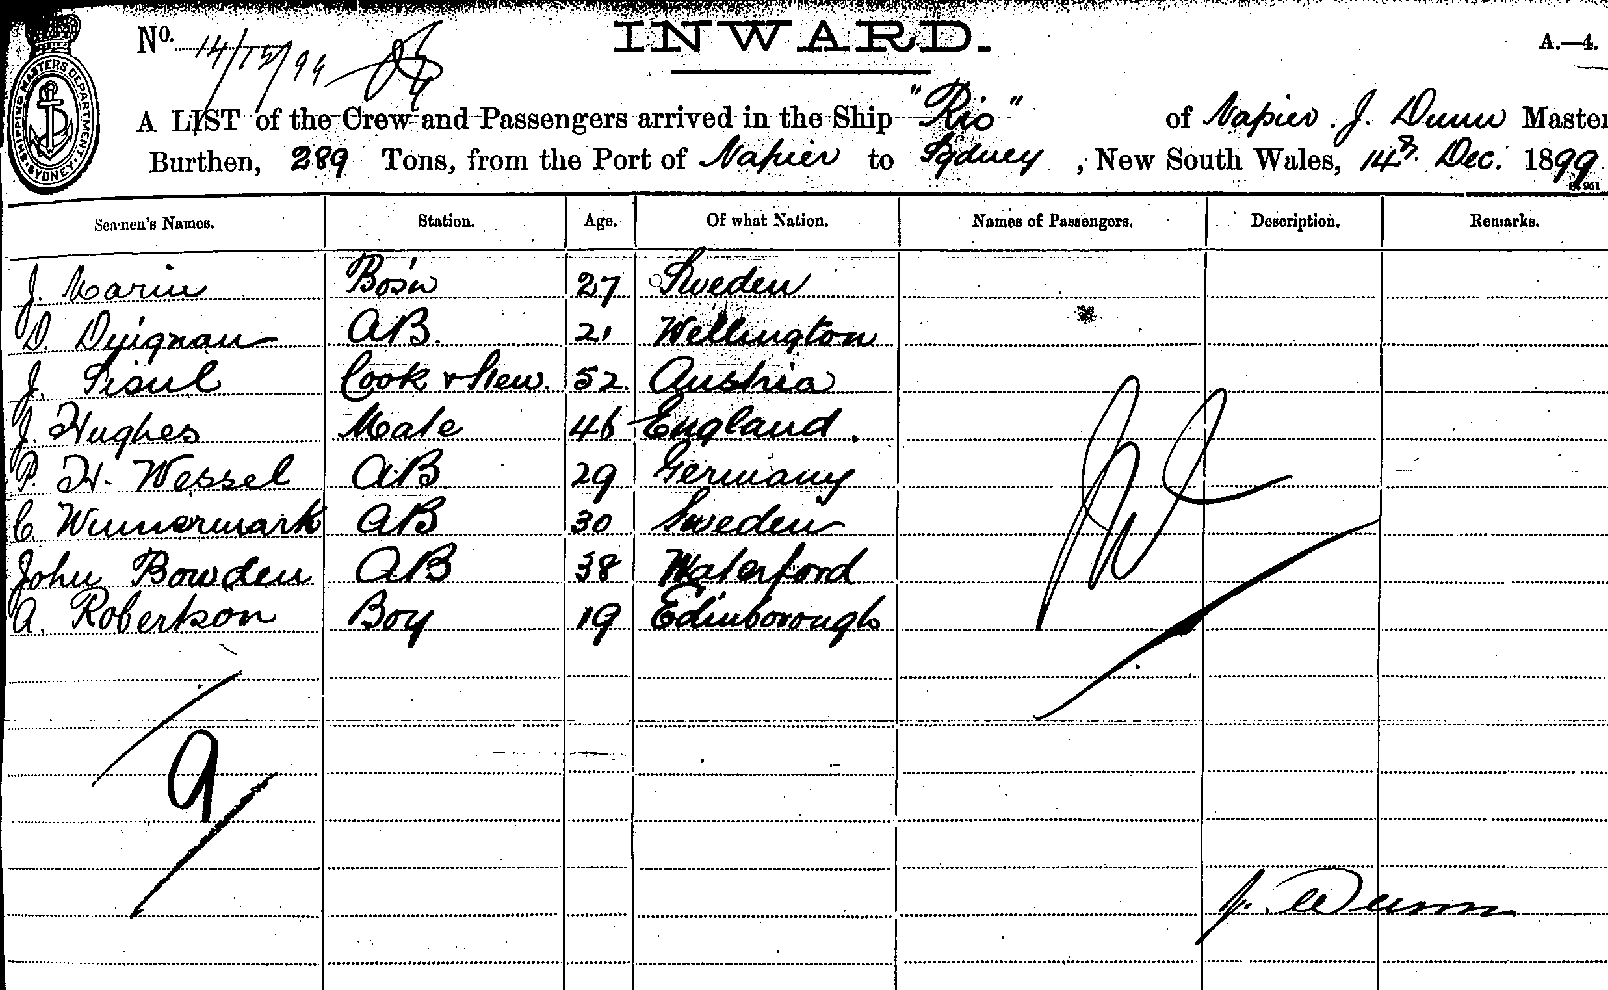 No. 14/12/99
INWARD.
A.—4.
A LIST of the Crew and Passengers arrived in the Ship "Rio" of Napier. J. Dunn Master
Burthen, 289 Tons, from the Port of Napier to Sydney, New South Wales, 14th Dec. 1899
SHIPPING MASTERS DEPARTMENT SYDNEY
Seamen's Names. Station. Age. Of what Nation. Names of Passengers. Description. Remarks.
J. Bos'n 27 Sweden
D. Duignan AB. 21 Wellington
J. Cook & Stew. 52 Austria
J. Hughes Mate 46 England.
P. H. Wessel AB 29 Germany
C. Winnermark AB 30 Sweden
John Bowden AB 38 Waterford
A. Robertson Boy 19 Edinborough
9
J. Dunn